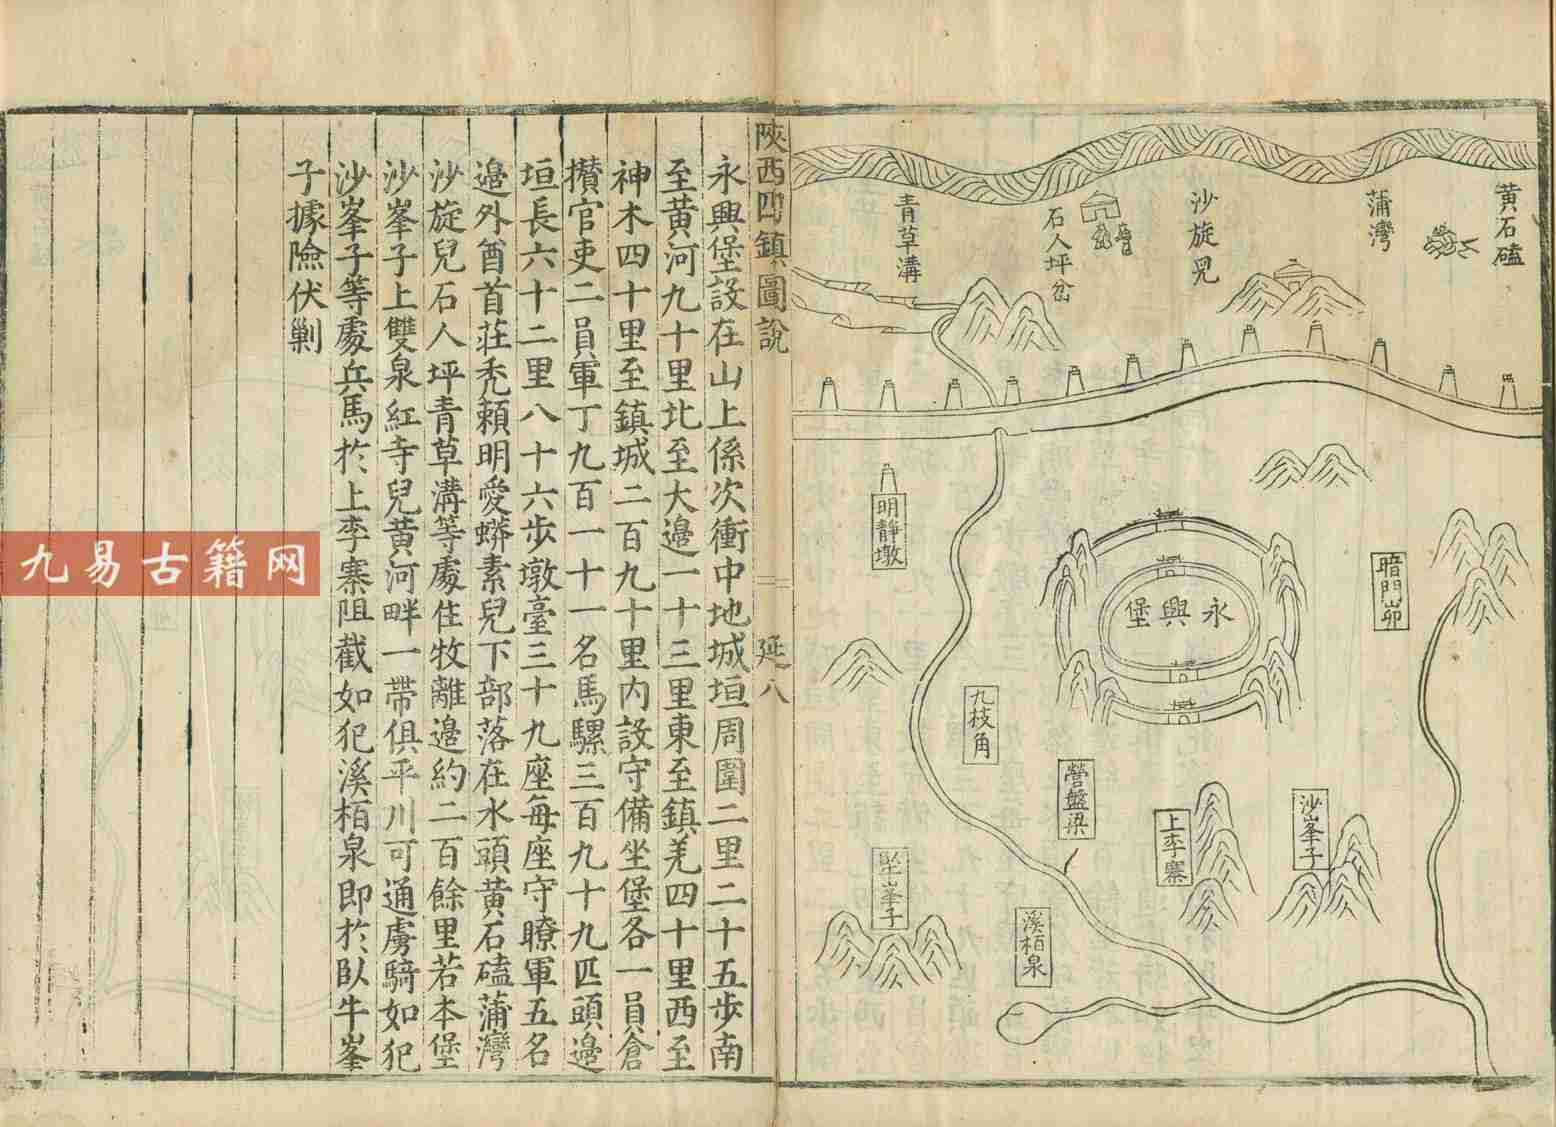 黄石磕
蒲灣
沙旋兒
石人坪岔
青草溝
暗門峁
明靜墩
永興堡
九枝角
營盤梁
上李寨
沙峯子
坐峯子
溪栢泉
陝西四鎮圖說
延八
永興堡設在山上係次衝中地城垣周圍二里二十五步南
至黄河九十里北至大邉一十三里東至鎮羌四十里西至
神木四十里至鎮城二百九十里内設守備坐堡各一員倉
攢官吏二員軍丁九百一十一名馬騾三百九十九匹頭邉
垣長六十二里八十六步墩臺三十九座每座守瞭軍五名
邉外酋首莊秃賴明愛蟒素兒下部落在水頭黄石磕蒲灣
沙旋兒石人坪青草溝等處住牧離邉約二百餘里若本堡
沙峯子上雙泉紅寺兒黄河畔一帶俱平川可通虜騎如犯
沙峯子等處兵馬於上李寨阻截如犯溪栢泉即於卧牛峯
子據險伏剿
九易古籍网